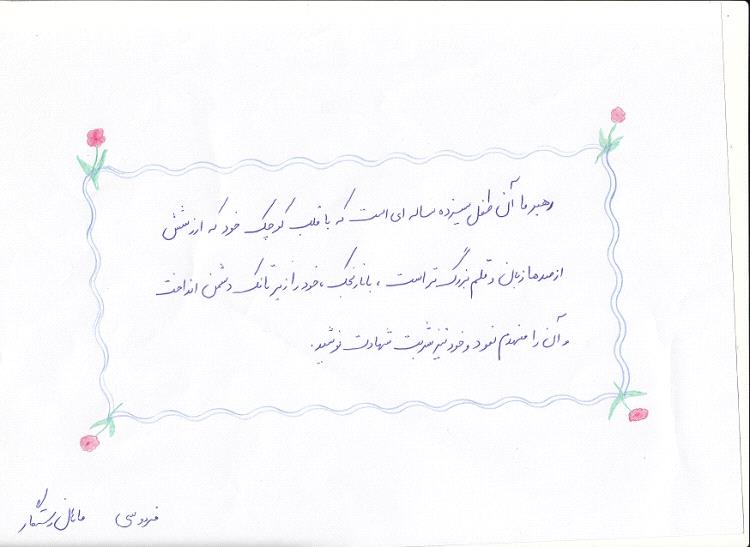 رهبر ما آن طفل سیزده ساله ای است که با قلب کوچک خود که ارزشش
از صدها زبان و قلم بزرگ تر است ، با نارنجک ، خود را زیر تانک دشمن انداخت
و آن را منهدم نمود و خود نیز شربت شهادت نوشید.
فردوسی رستگار